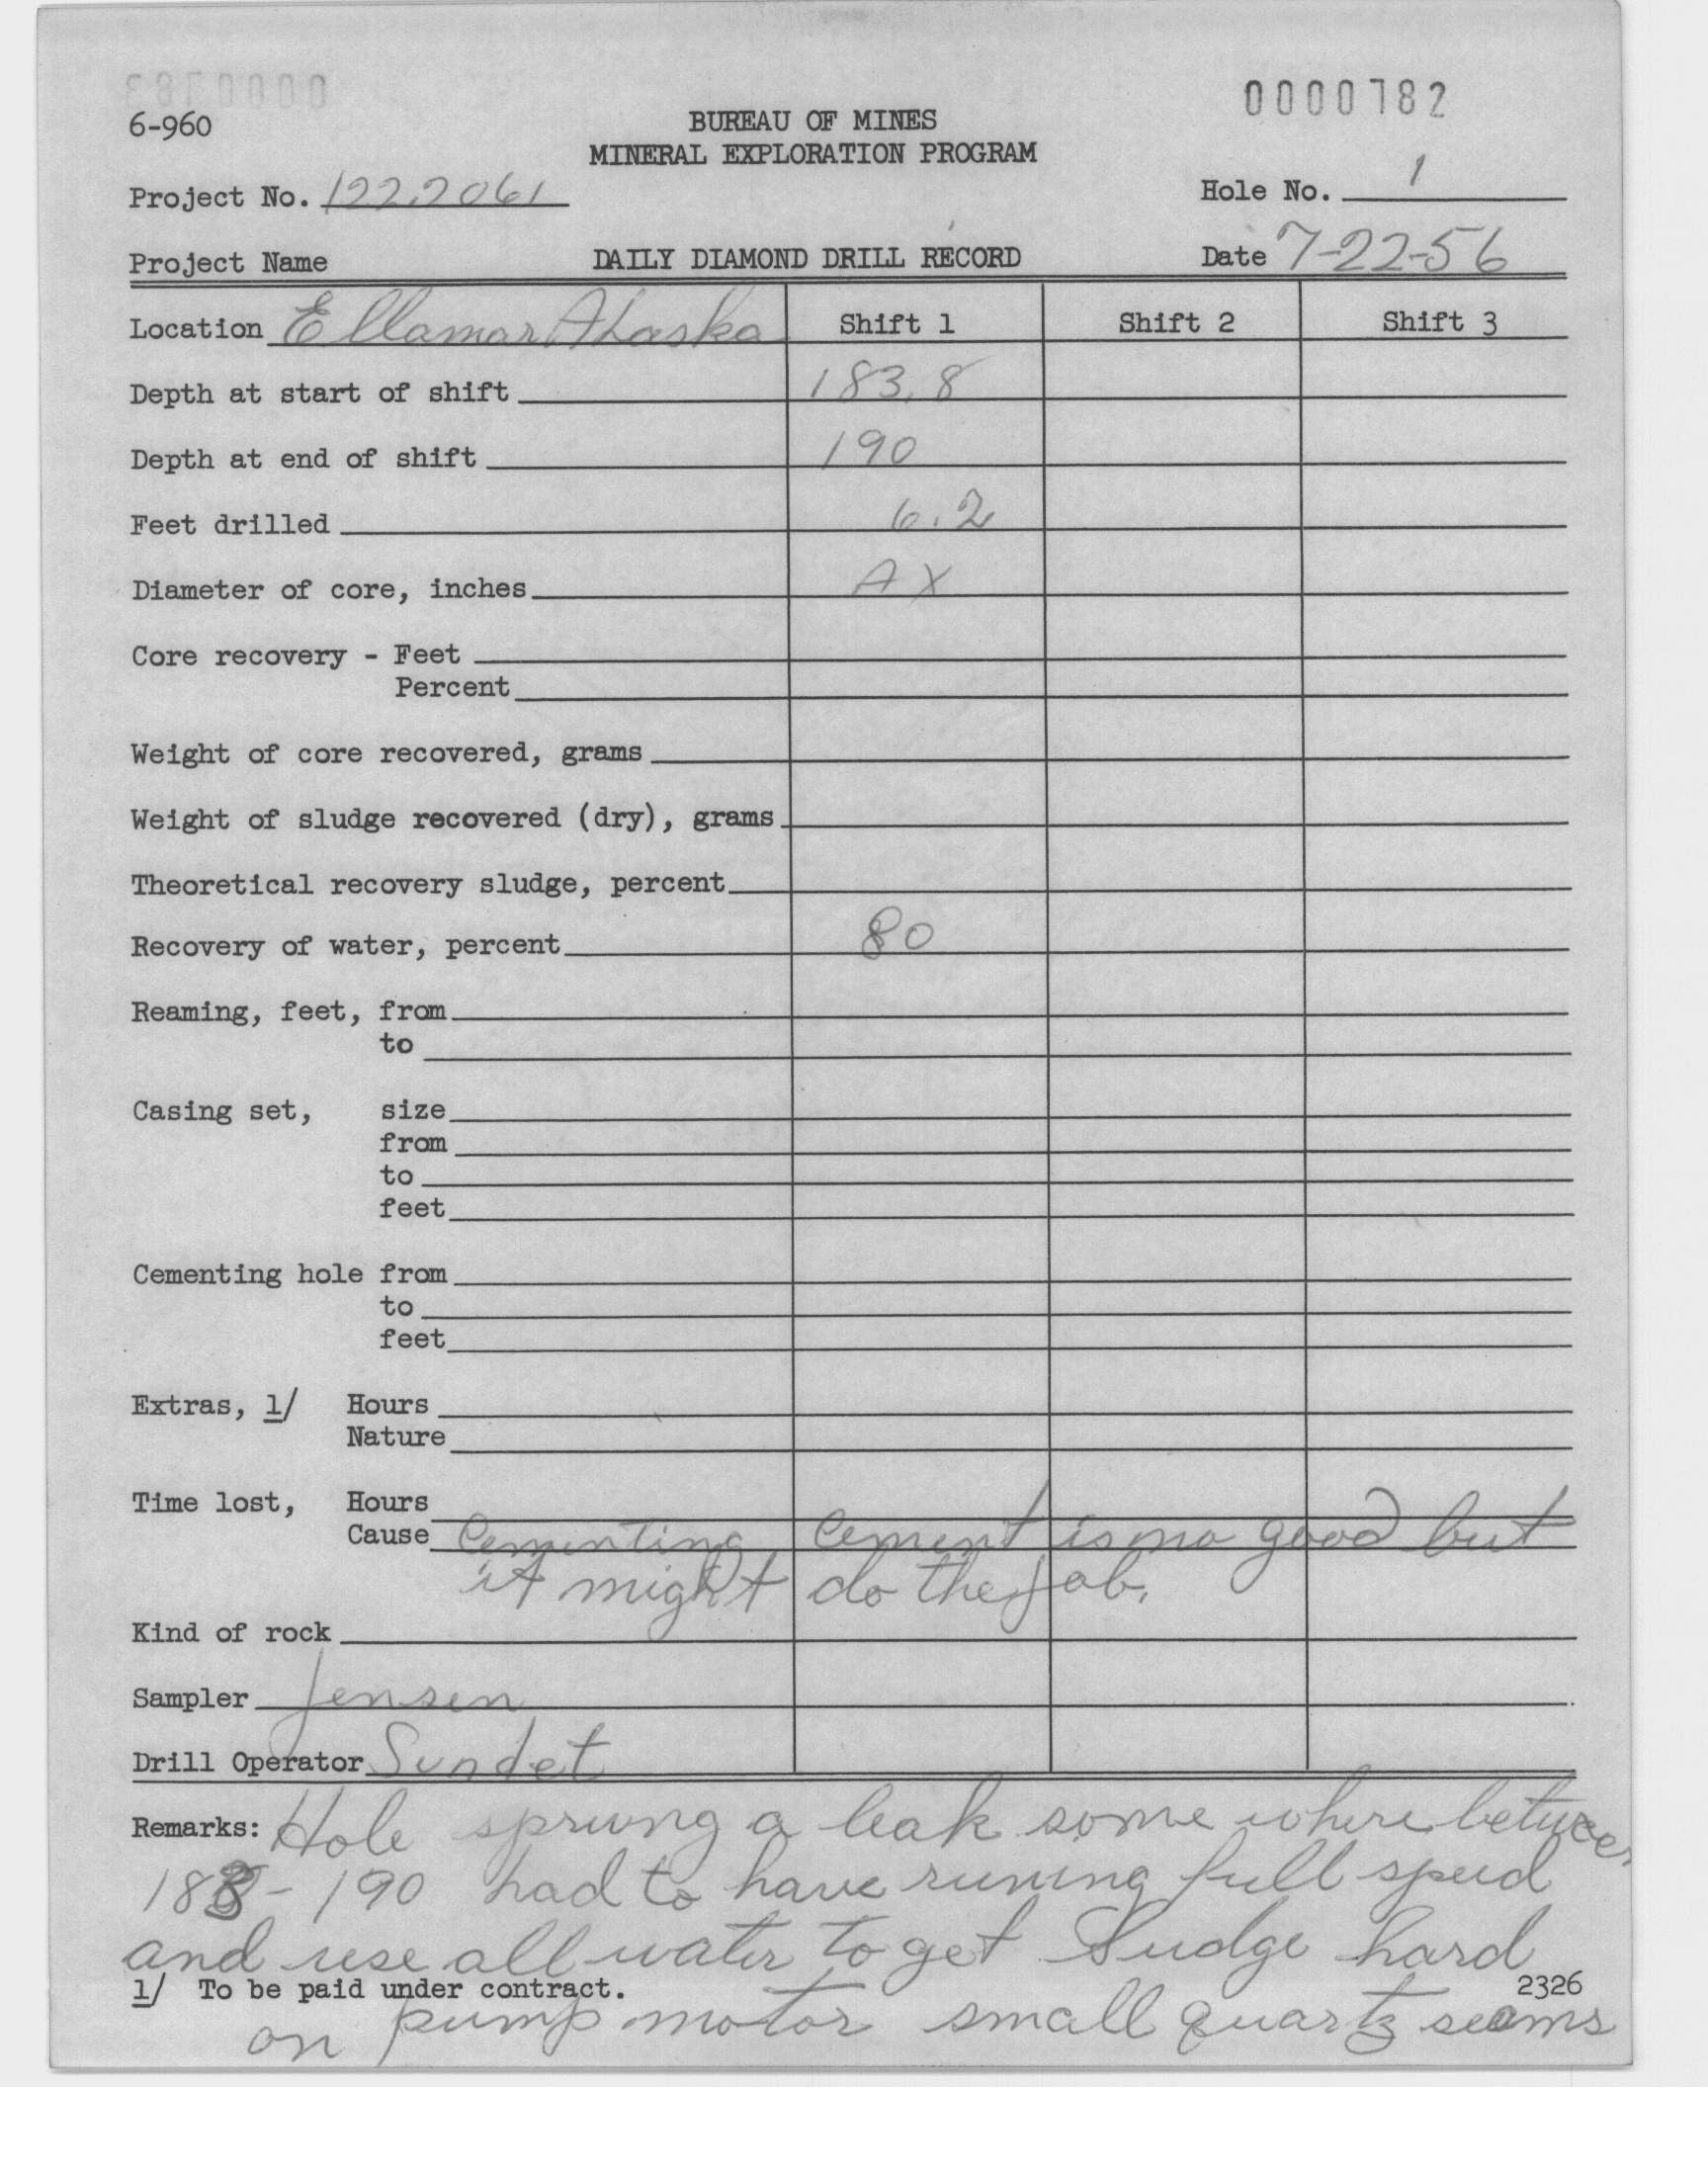 0000782
6-960
BUREAU OF MINES
MINERAL EXPLORATION PROGRAM
Project No. 122.2061
Hole No. 1
Project Name
DAILY DIAMOND DRILL RECORD
Date 7-22-56
Location Ellamar Alaska Shift 1 Shift 2 Shift 3
Depth at start of shift 183.8
Depth at end of shift 190
Feet drilled 6.2
Diameter of core, inches AX
Core recovery - Feet
Percent
Weight of core recovered, grams
Weight of sludge recovered (dry), grams
Theoretical recovery sludge, percent
Recovery of water, percent 80
Reaming, feet, from
to
Casing set, size
from
to
feet
Cementing hole from
to
feet
Extras, 1/ Hours
Nature
Time lost, Hours
Cause Cementing Cement is no good but
it might do the job.
Kind of rock
Sampler Jensen
Drill Operator Sundet
Remarks: Hole sprung a leak some where between
188-190 had to have runing full speed
and use all water to get Sludge hard
1/ To be paid under contract. 2326
on pump motor small quartz seams